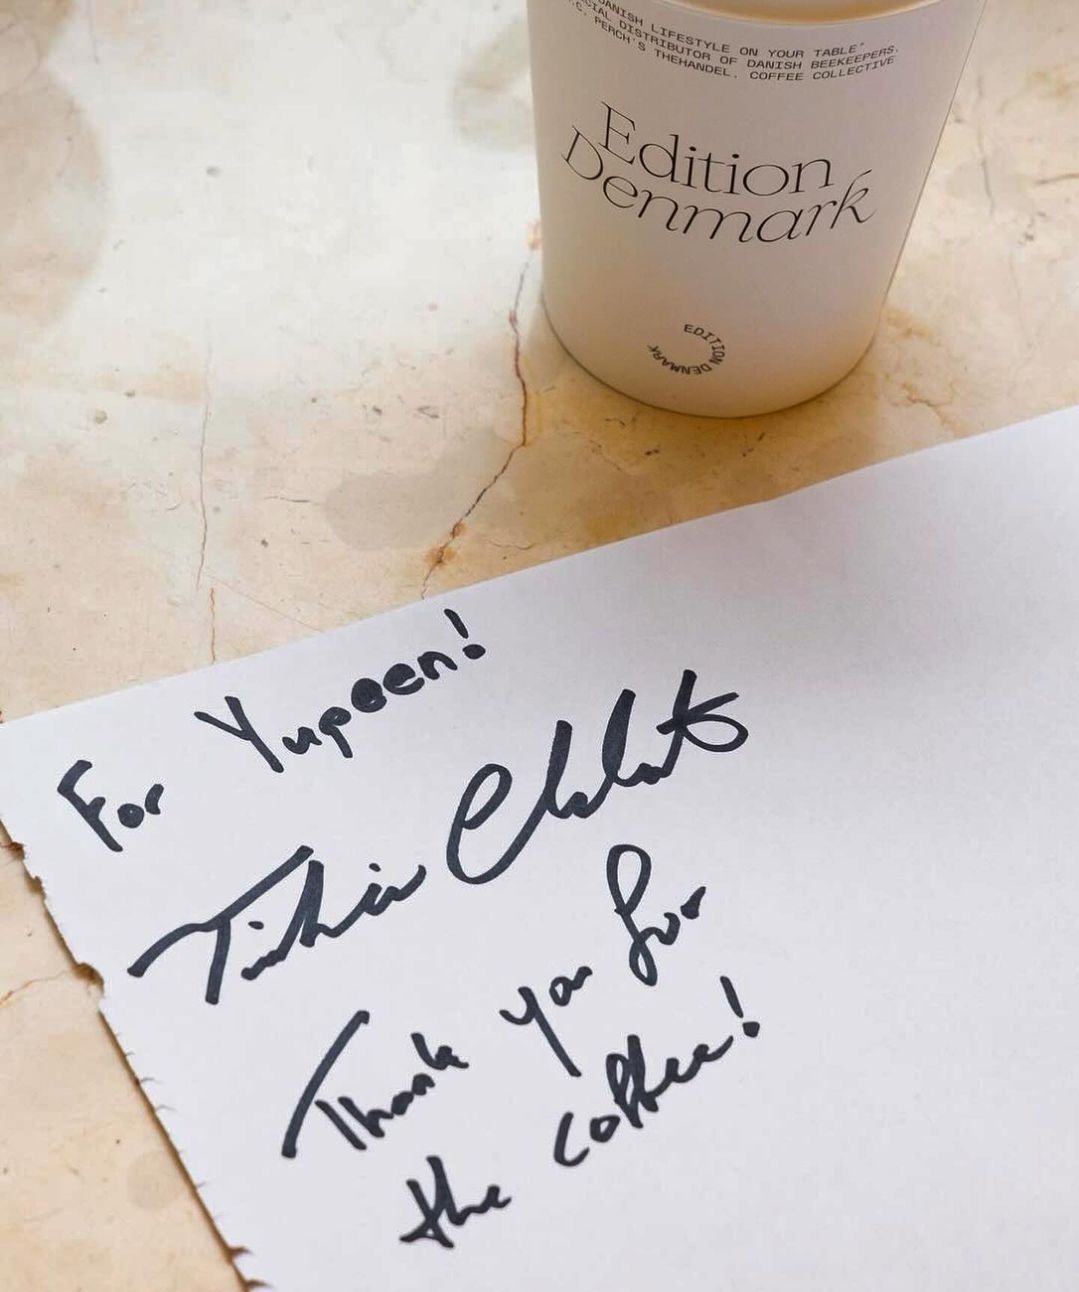 DANISH LIFESTYLE ON YOUR TABLE"
CIAL DISTRIBUTOR OF DANISH BEEKEEPERS.
C. PERCH'S THEHANDEL. COFFEE COLLECTIVE
Edition
Denmark
EDITION DENMARK
For Yupoen!
Thank you for
the coffee!